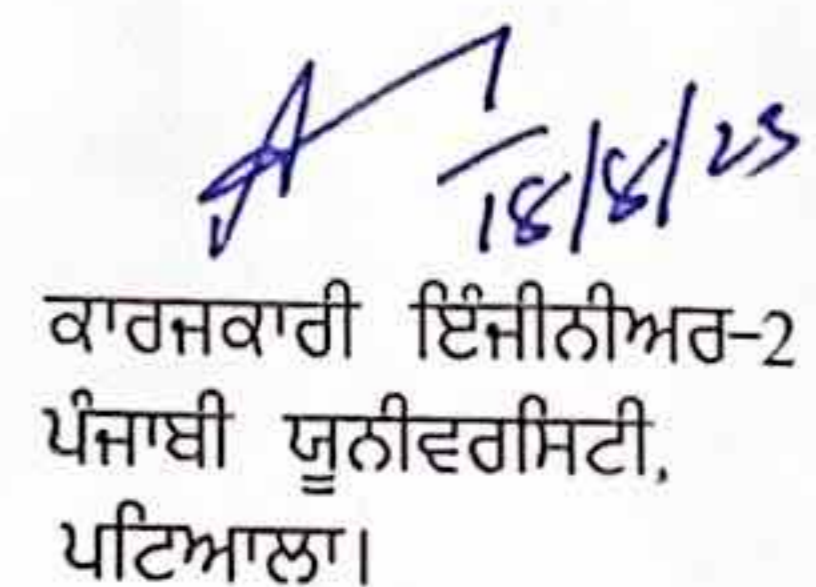 18/8/23
ਕਾਰਜਕਾਰੀ ਇੰਜੀਨੀਅਰ-2
ਪੰਜਾਬੀ ਯੂਨੀਵਰਸਿਟੀ,
ਪਟਿਆਲਾ।